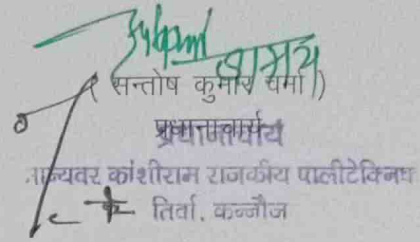 (सन्तोष कुमार वर्मा)
प्रधानाचार्य
मान्यवर कांशीराम राजकीय पालीटेक्निक
तिर्वा, कन्नौज